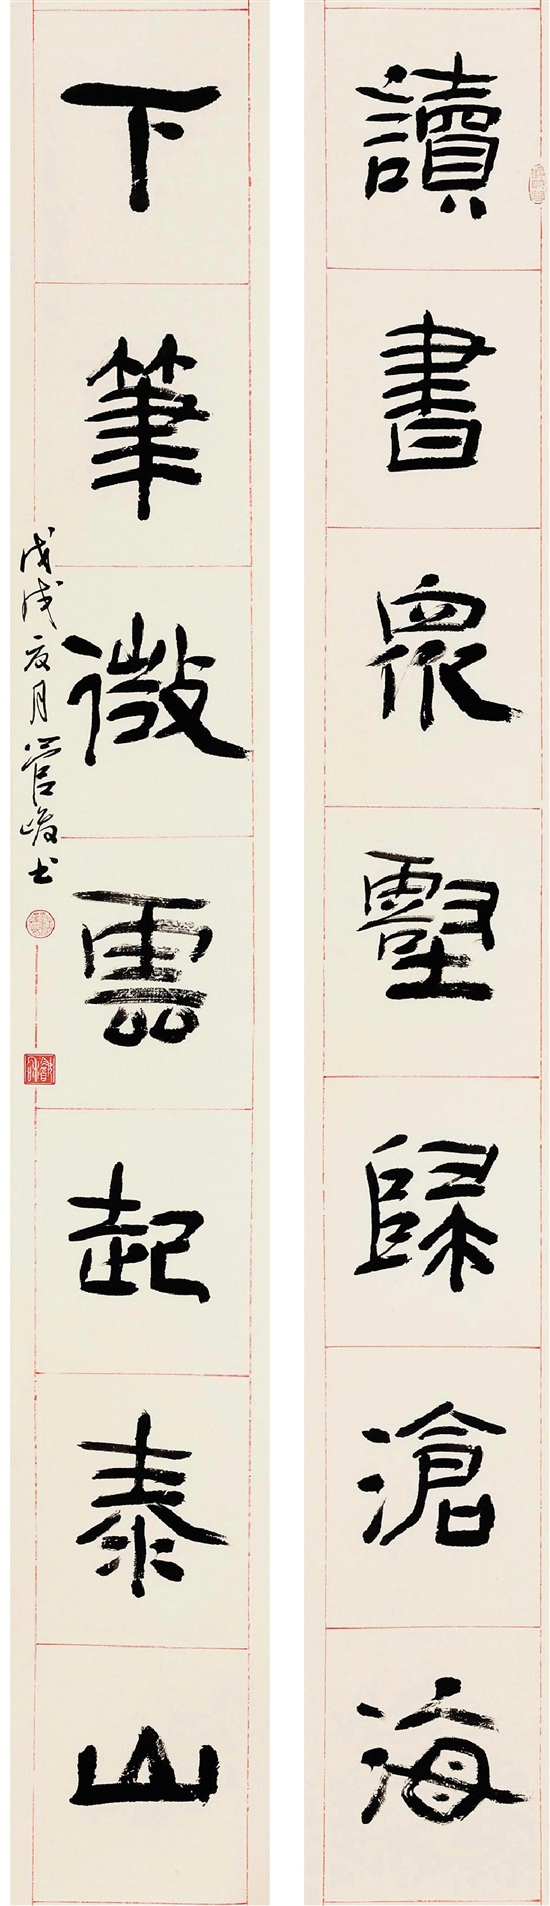 讀書眾壑歸滄海
下筆微雲起泰山
戊戌夏月管峻書